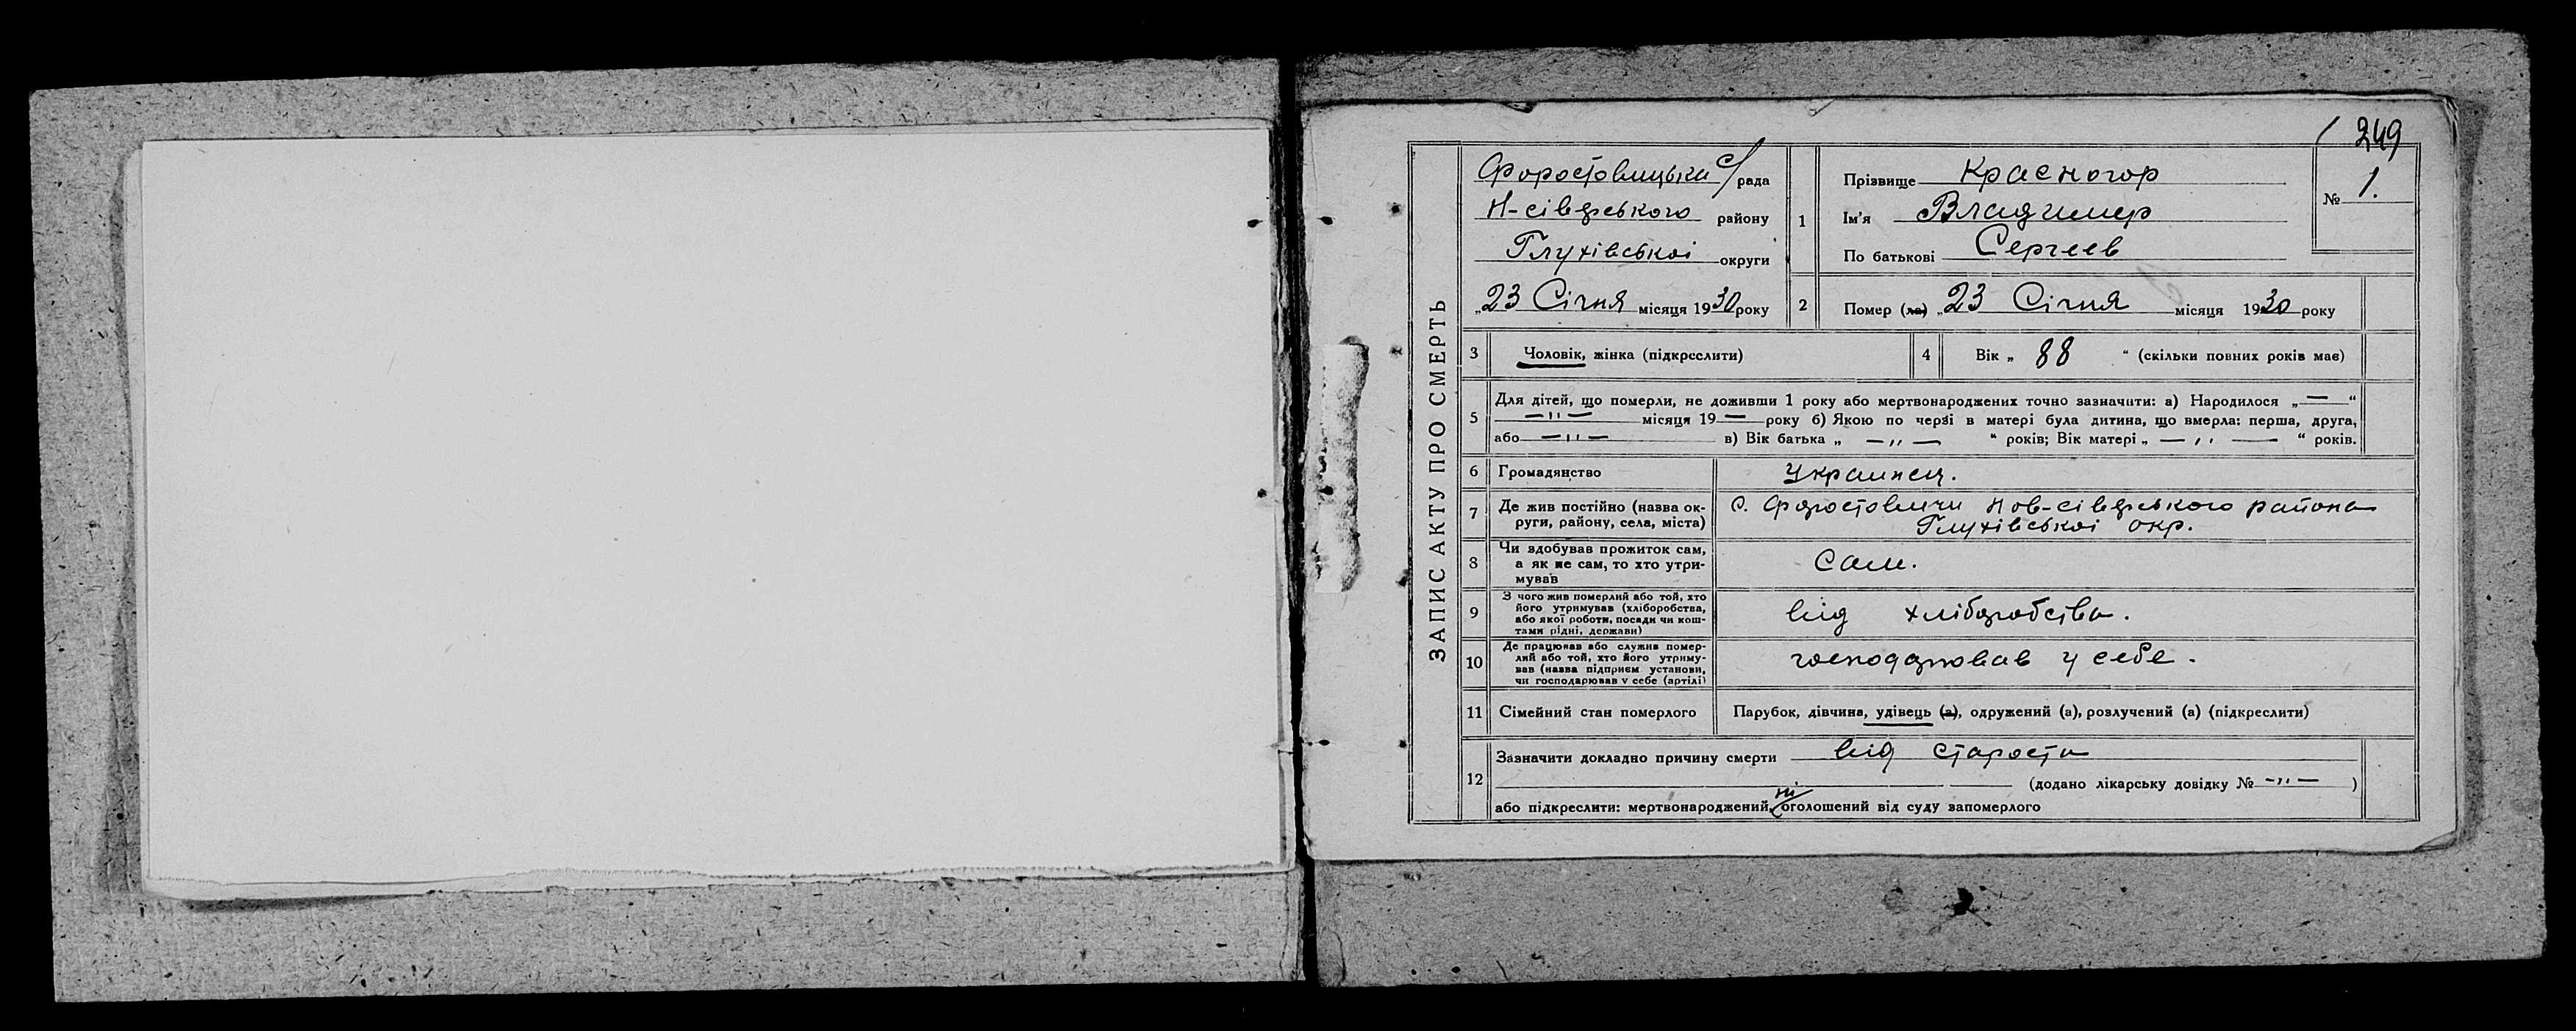 249
ЗАПИС АКТУ ПРО СМЕРТЬ
Форостовицька с/рада
Н-сіверського району
Глухівськоі округи
„23 Січня місяця 1930 року
1
Прізвище Красногор
Ім'я Владимир
По батькові Сергеев
№ 1.
2
Помер (ла) „23 Січня місяця 1930 року
3 Чоловік, жінка (підкреслити)
4 Вік „ 88 “ (скільки повних років має)
5 Для дітей, що померли, не доживши 1 року або мертвонароджених точно зазначити: а) Народилося „—“
—„— місяця 19— року б) Якою по черзі в матері була дитина, що вмерла: перша, друга,
або —„— в) Вік батька „ —„— “ років; Вік матері „ —„— “ років.
6 Громадянство Украинец.
7 Де жив постійно (назва ок-
руги, району, села, міста)
с. Форостовичи Нов-сіверського района
Глухівськоі окр.
8 Чи здобував прожиток сам,
а як не сам, то хто утри-
мував
Сам.
9 З чого жив померлий або той, хто
його утримував (хліборобства,
або якої роботи, посади чи кош-
тами рідні, держави)
від хліборобства.
10 Де працював або служив помер-
лий або той, хто його утриму-
вав (назва підприєм установи,
чи господарював у себе (артілі)
господарював у себе.
11 Сімейний стан померлого Парубок, дівчина, удівець (а), одружений (а), розлучений (а) (підкреслити)
12 Зазначити докладно причину смерти від старости
(додано лікарську довідку № —„— )
ні
або підкреслити: мертвонароджений, оголошений від суду запомерлого